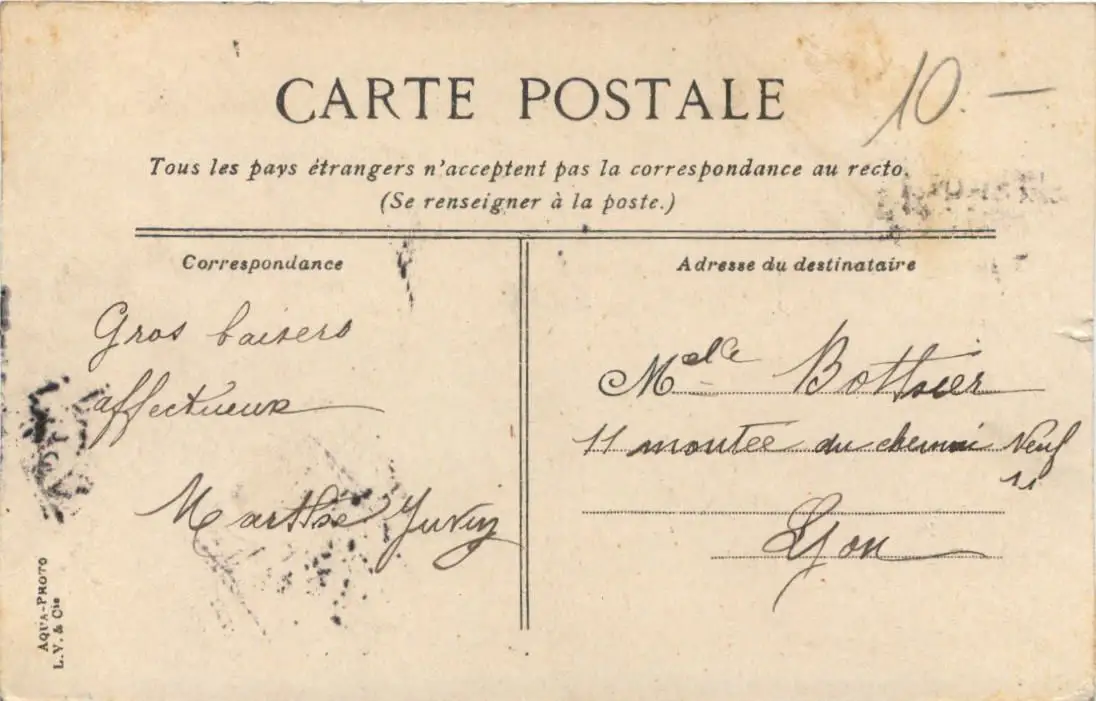 CARTE POSTALE
10.—
Tous les pays étrangers n'acceptent pas la correspondance au recto.
(Se renseigner à la poste.)
Correspondance
Gros baisers
affectueux
Marthe
Adresse du destinataire
Melle Bottsier
11 montée du chemin Neuf
11
Lyon
AQUA-PHOTO
L. V. & Cie